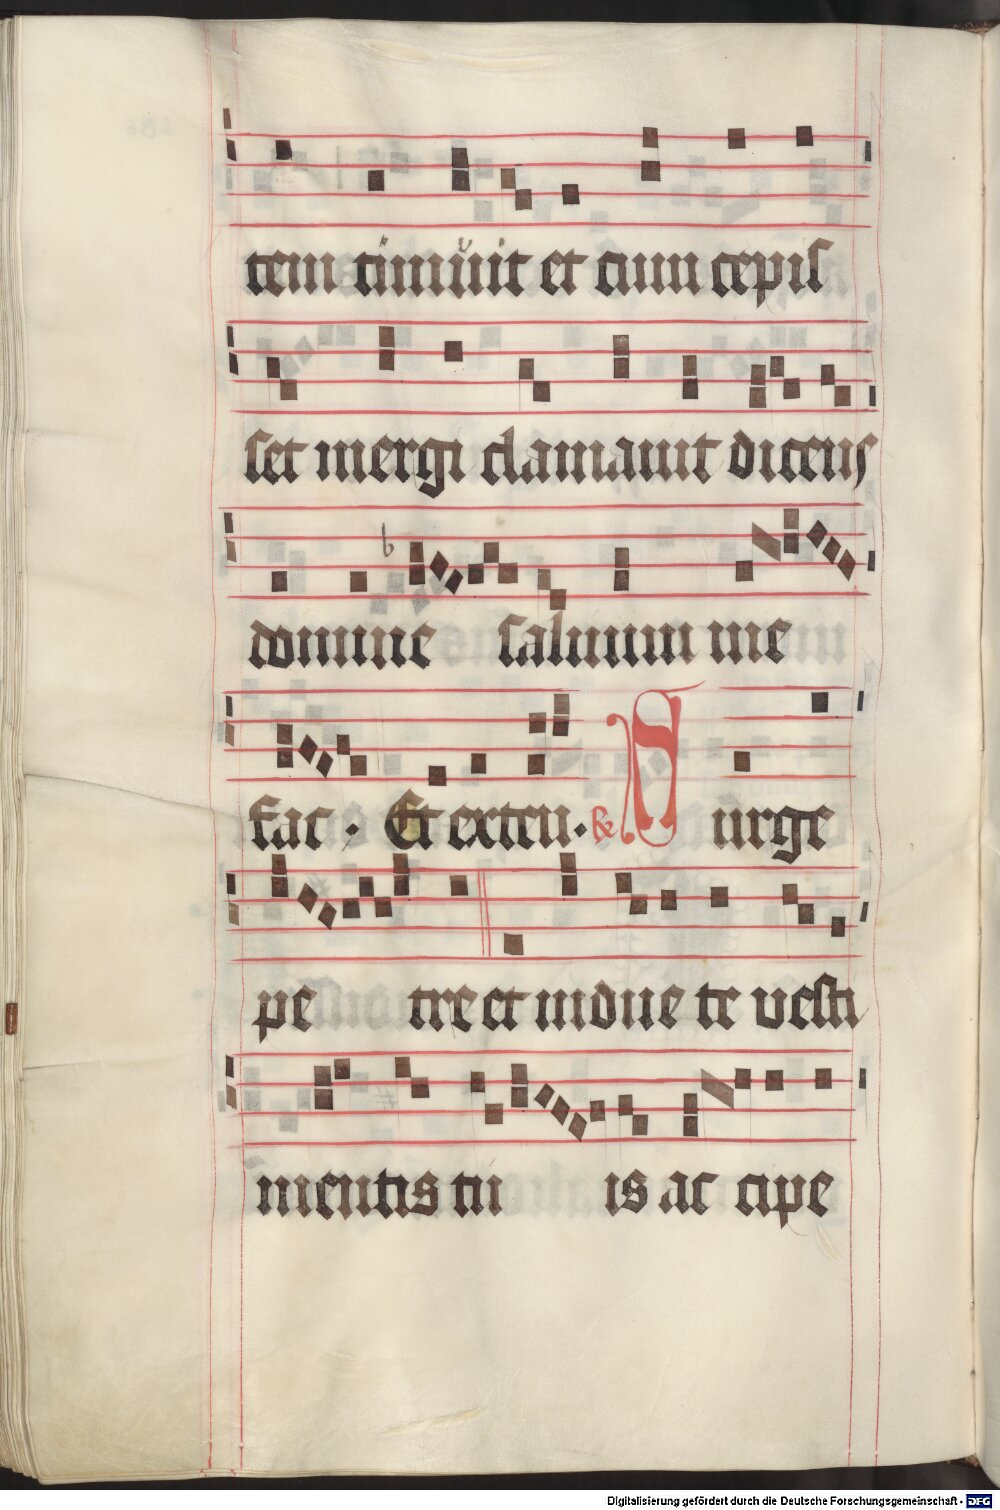 tem timuit et cum cepis
set mergi clamauit dicens
domine saluum me
fac · Et exten · R Surge
pe tre et indue te uesti
mentis tu is ac cipe
Digitalisierung gefördert durch die Deutsche Forschungsgemeinschaft - DFG